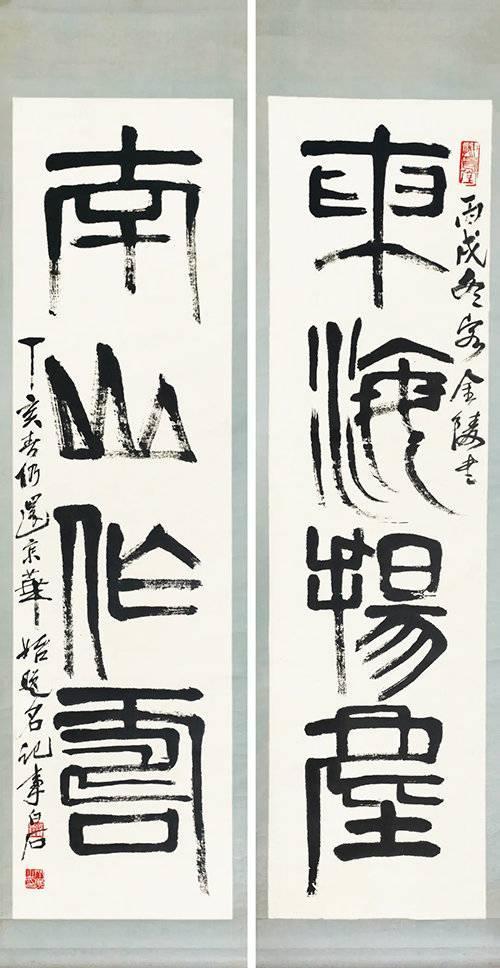 東海揚塵
丙戌冬客金陵書
南山作壽
丁亥春仍還京華始題名記事白石